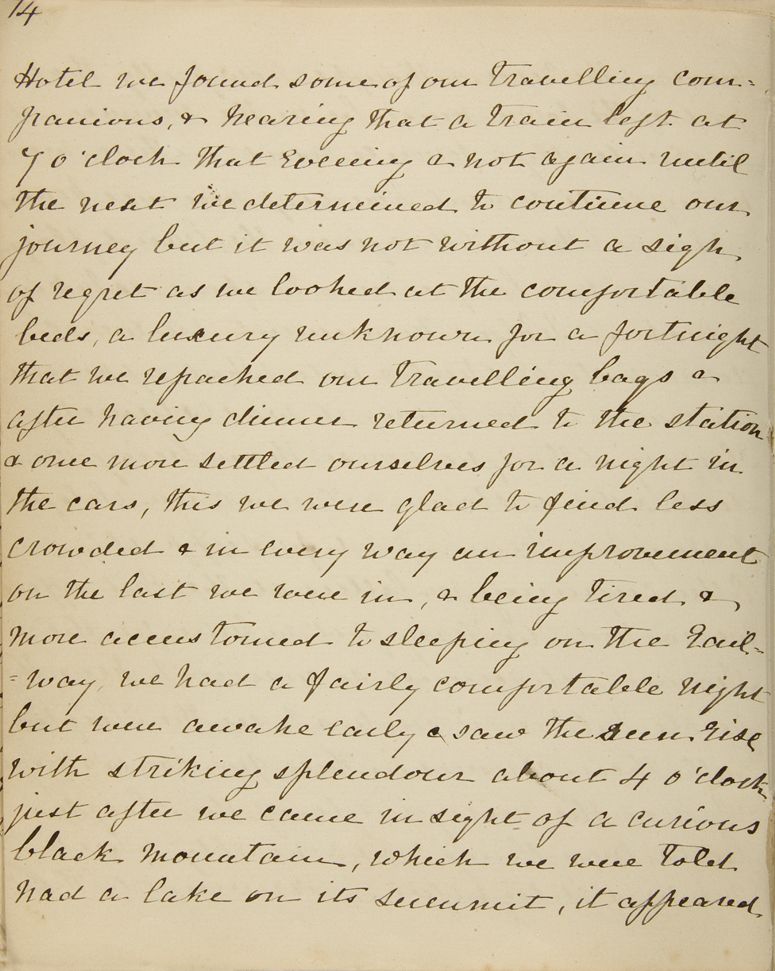 14
Hotel we found some of our travelling com-
panions, & hearing that a train left at
7 o'clock that Evening & not again until
the next we determined to continue our
journey but it was not without a sigh
of regret as we looked at the comfortable
beds, a luxury unknown for a fortnight
that we repacked our travelling bags &
after having dinner returned to the station
& once more settled ourselves for a night in
the cars, this we were glad to find less
crowded & in every way an improvement
on the last we were in, & being tired &
more accustomed to sleeping on the Rail-
=way, we had a fairly comfortable night
but were awake early & saw the sun rise
with striking splendour about 4 o'clock
just after we came in sight of a curious
black mountain, which we were told
had a lake on its summit, it appeared